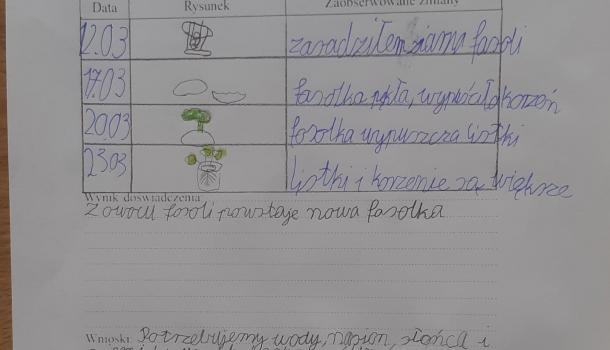 Data Rysunek Zaobserwowane zmiany
12.03 zasadziłem ziarno fasoli
17.03 fasolka pękła, wypuściła korzeń
20.03 fasolka wypuszcza listki
23.03 listki i korzenie są większe
Wynik doświadczenia:
Z owocu fasoli powstaje nowa fasolka
Wnioski: Potrzebujemy wody, nasion, słońca i